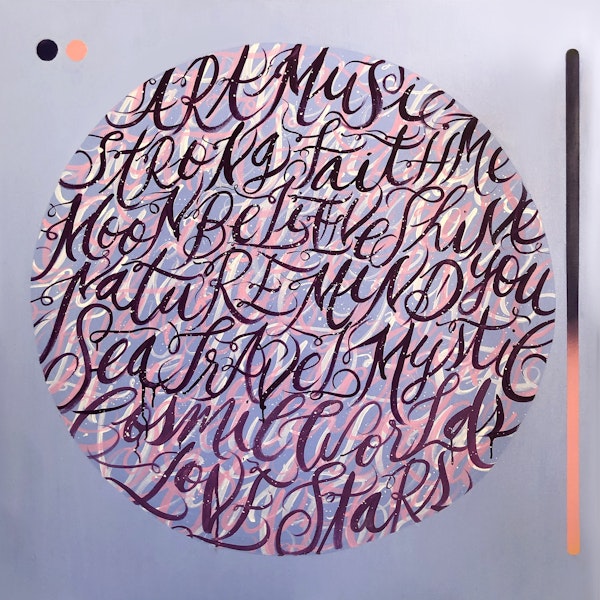 ART MUSIC
STRONG FaiTH ME
MOON BELIEVE SHINE
NatuRE MIND YOU
Sea TRAVEL Mystic
Cosmic Worlds
LOVE StaRS